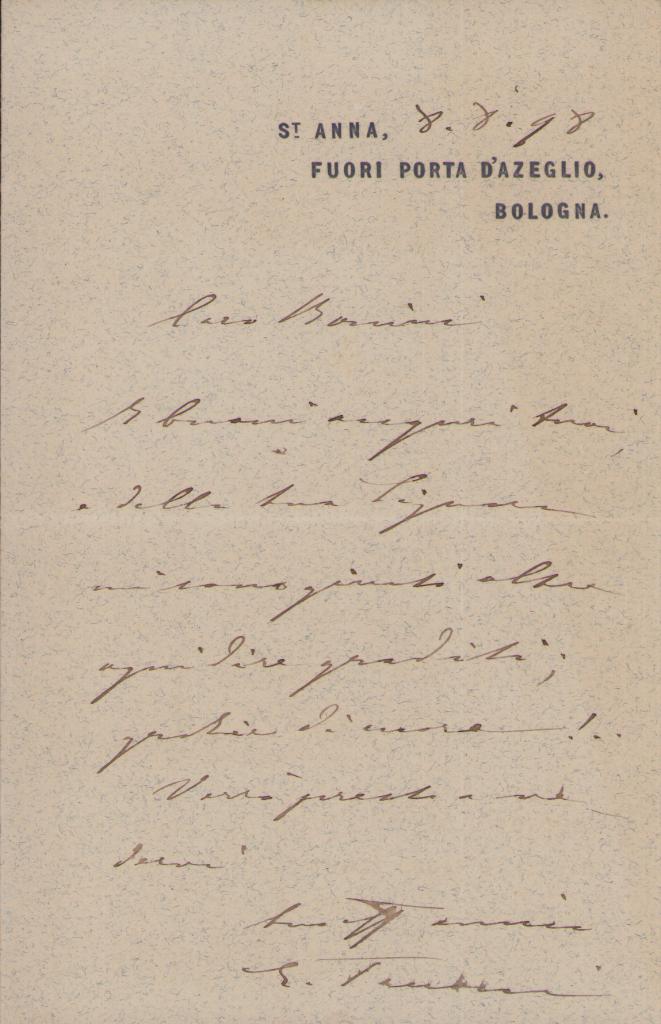 ST ANNA, 8. 8. 98
FUORI PORTA D'AZEGLIO,
BOLOGNA.
Caro Bonini
I buoni auguri tuoi,
e della tua Signora
mi sono giunti oltre
ogni dire graditi;
grazie di cuore !..
Verrò presto a ve
dervi
tuo aff amico
E.